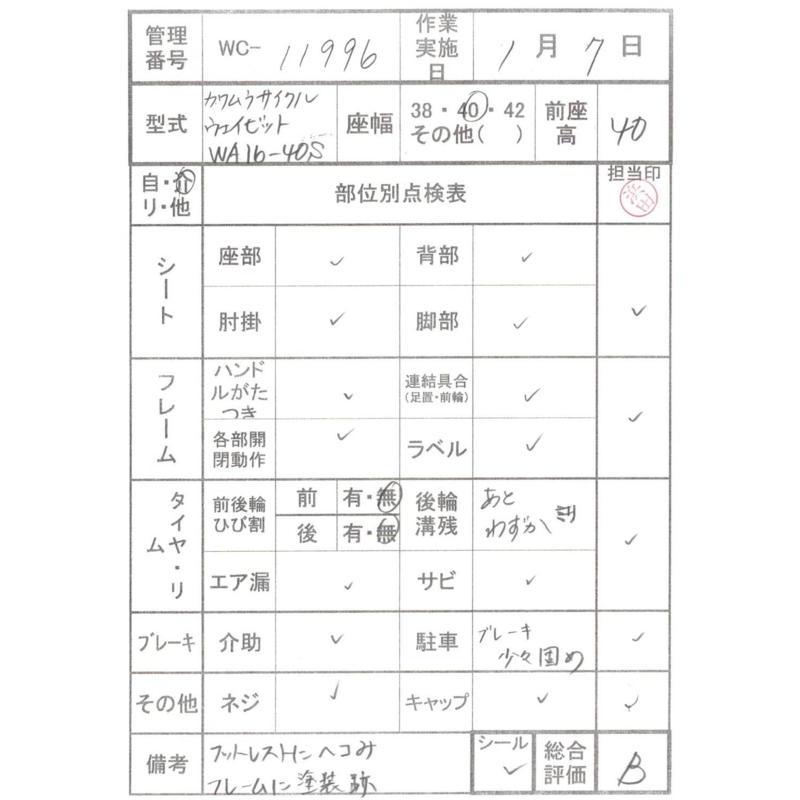 管理番号 WC- 11996 作業実施日 1月7日
型式 カワムラサイクル ウェイビット WA16-40S 座幅 38・40・42 その他( ) 前座高 40
自・介 リ・他 部位別点検表 担当印
シート 座部 ✓ 背部 ✓ ✓
肘掛 ✓ 脚部 ✓
フレーム ハンドルがたつき ✓ 連結具合 (足置・前輪) ✓ ✓
各部開閉動作 ✓ ラベル ✓
タイヤ・リム 前後輪ひび割 前 有・無 後輪溝残 あと わずか ✓
後 有・無
エア漏 ✓ サビ ✓
ブレーキ 介助 ✓ 駐車 ブレーキ 少々固め ✓
その他 ネジ ✓ キャップ ✓ ✓
備考 フットレストにヘコみ シール ✓ 総合評価 B
フレームに塗装跡